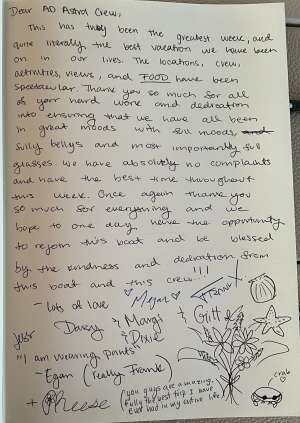 Dear AD Astra Crew,
This has truly been the greatest week, and
quite literally the best vacation we have been
on in our lives. The locations, crew,
activities, views, and FOOD have been
spectacular. Thank you so much for all
of your hard work and dedication
into ensuring that we have all been
in great moods with full moods, and
fully bellys and most importantly full
glasses. We have absolutely no complaints
and have the best time throughout
this week. Once again thank you
so much for everything and we
hope to one day have the opportunity
to rejoin this boat and be blessed
by the kindness and dedication from
this boat and this crew!!!
- lots of love Megan Frank X
Darcy & Margi & Gitte
& Dixie
"I am wearing pants"
- Egan (really Frank)
+ Reese (you guys are amazing.
fully the best trip I have
ever had in my entire life.)
crab